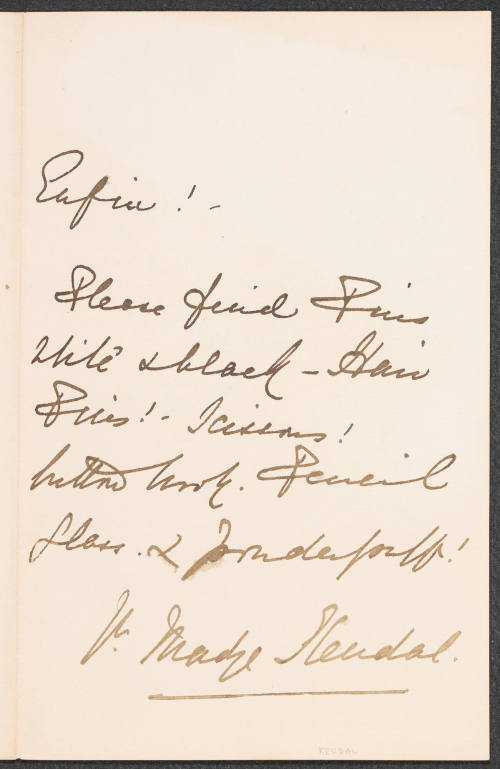 Enfin! -
Please find Pins
White & black - Hair
Pins! - Scissors!
button hook. Pencil
Glass. & Powderpuff!
Yrs. Madge Kendal.
KENDAL